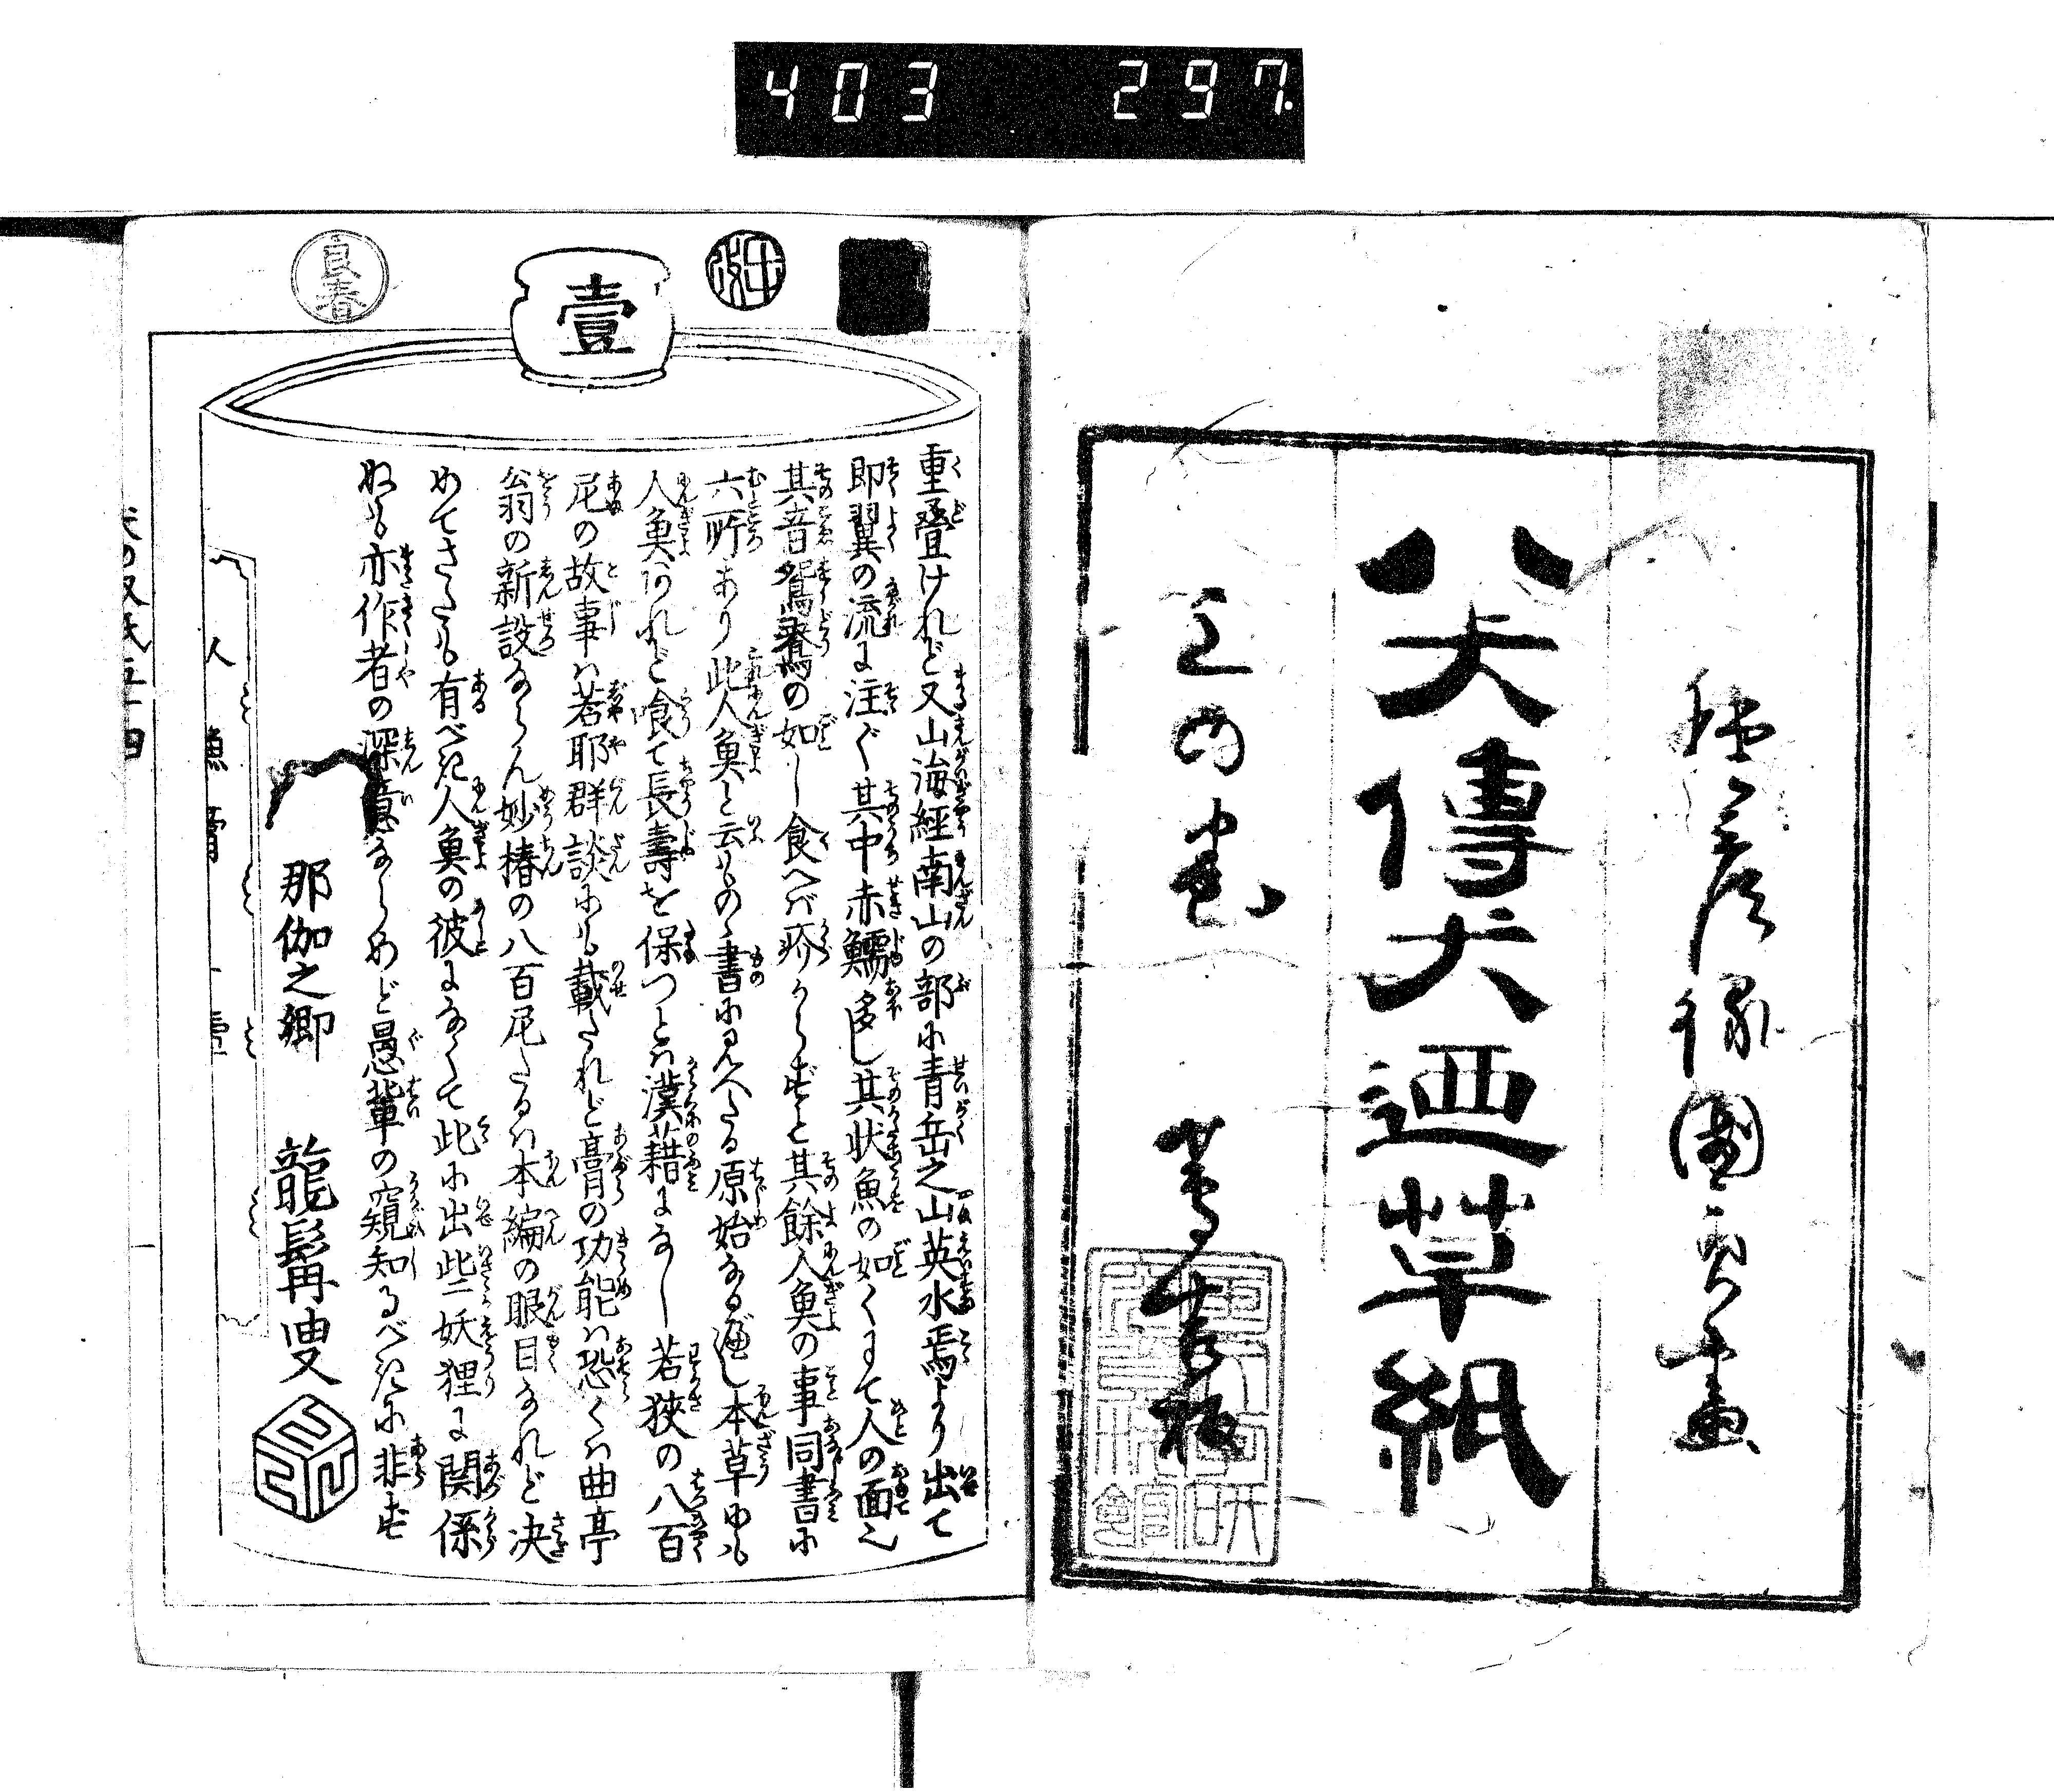 403 297.
種彦録国貞画
犬傳犬廼草紙
上の巻
蔦吉板
壹
良春
重疊けれど又山海經南山の部に青岳之山英水焉より出て
即翼の流に注ぐ其中赤鱬多し其状魚の如くにて人の面之
其音鴛鴦の如し食へバ疥からずと其餘人魚の事同書に
六所あり此人魚と云ものゝ書に見へたる原始なるべし本草にも
人魚あれど喰て長壽を保つとハ漢籍になし若狹の八百
尼の故事ハ若耶群談にも載たれど膏の功能ハ恐くハ曲亭
翁の新設ならん妙椿の八百尼たるハ本編の眼目なれど决
めてさるも有べき人魚の彼になくて此に出些妖狸に関係
ぬも亦作者の深意ならめど愚輩の窺知るべきに非ず
那伽之郷 龍髯叟
犬の双氏五ノ四